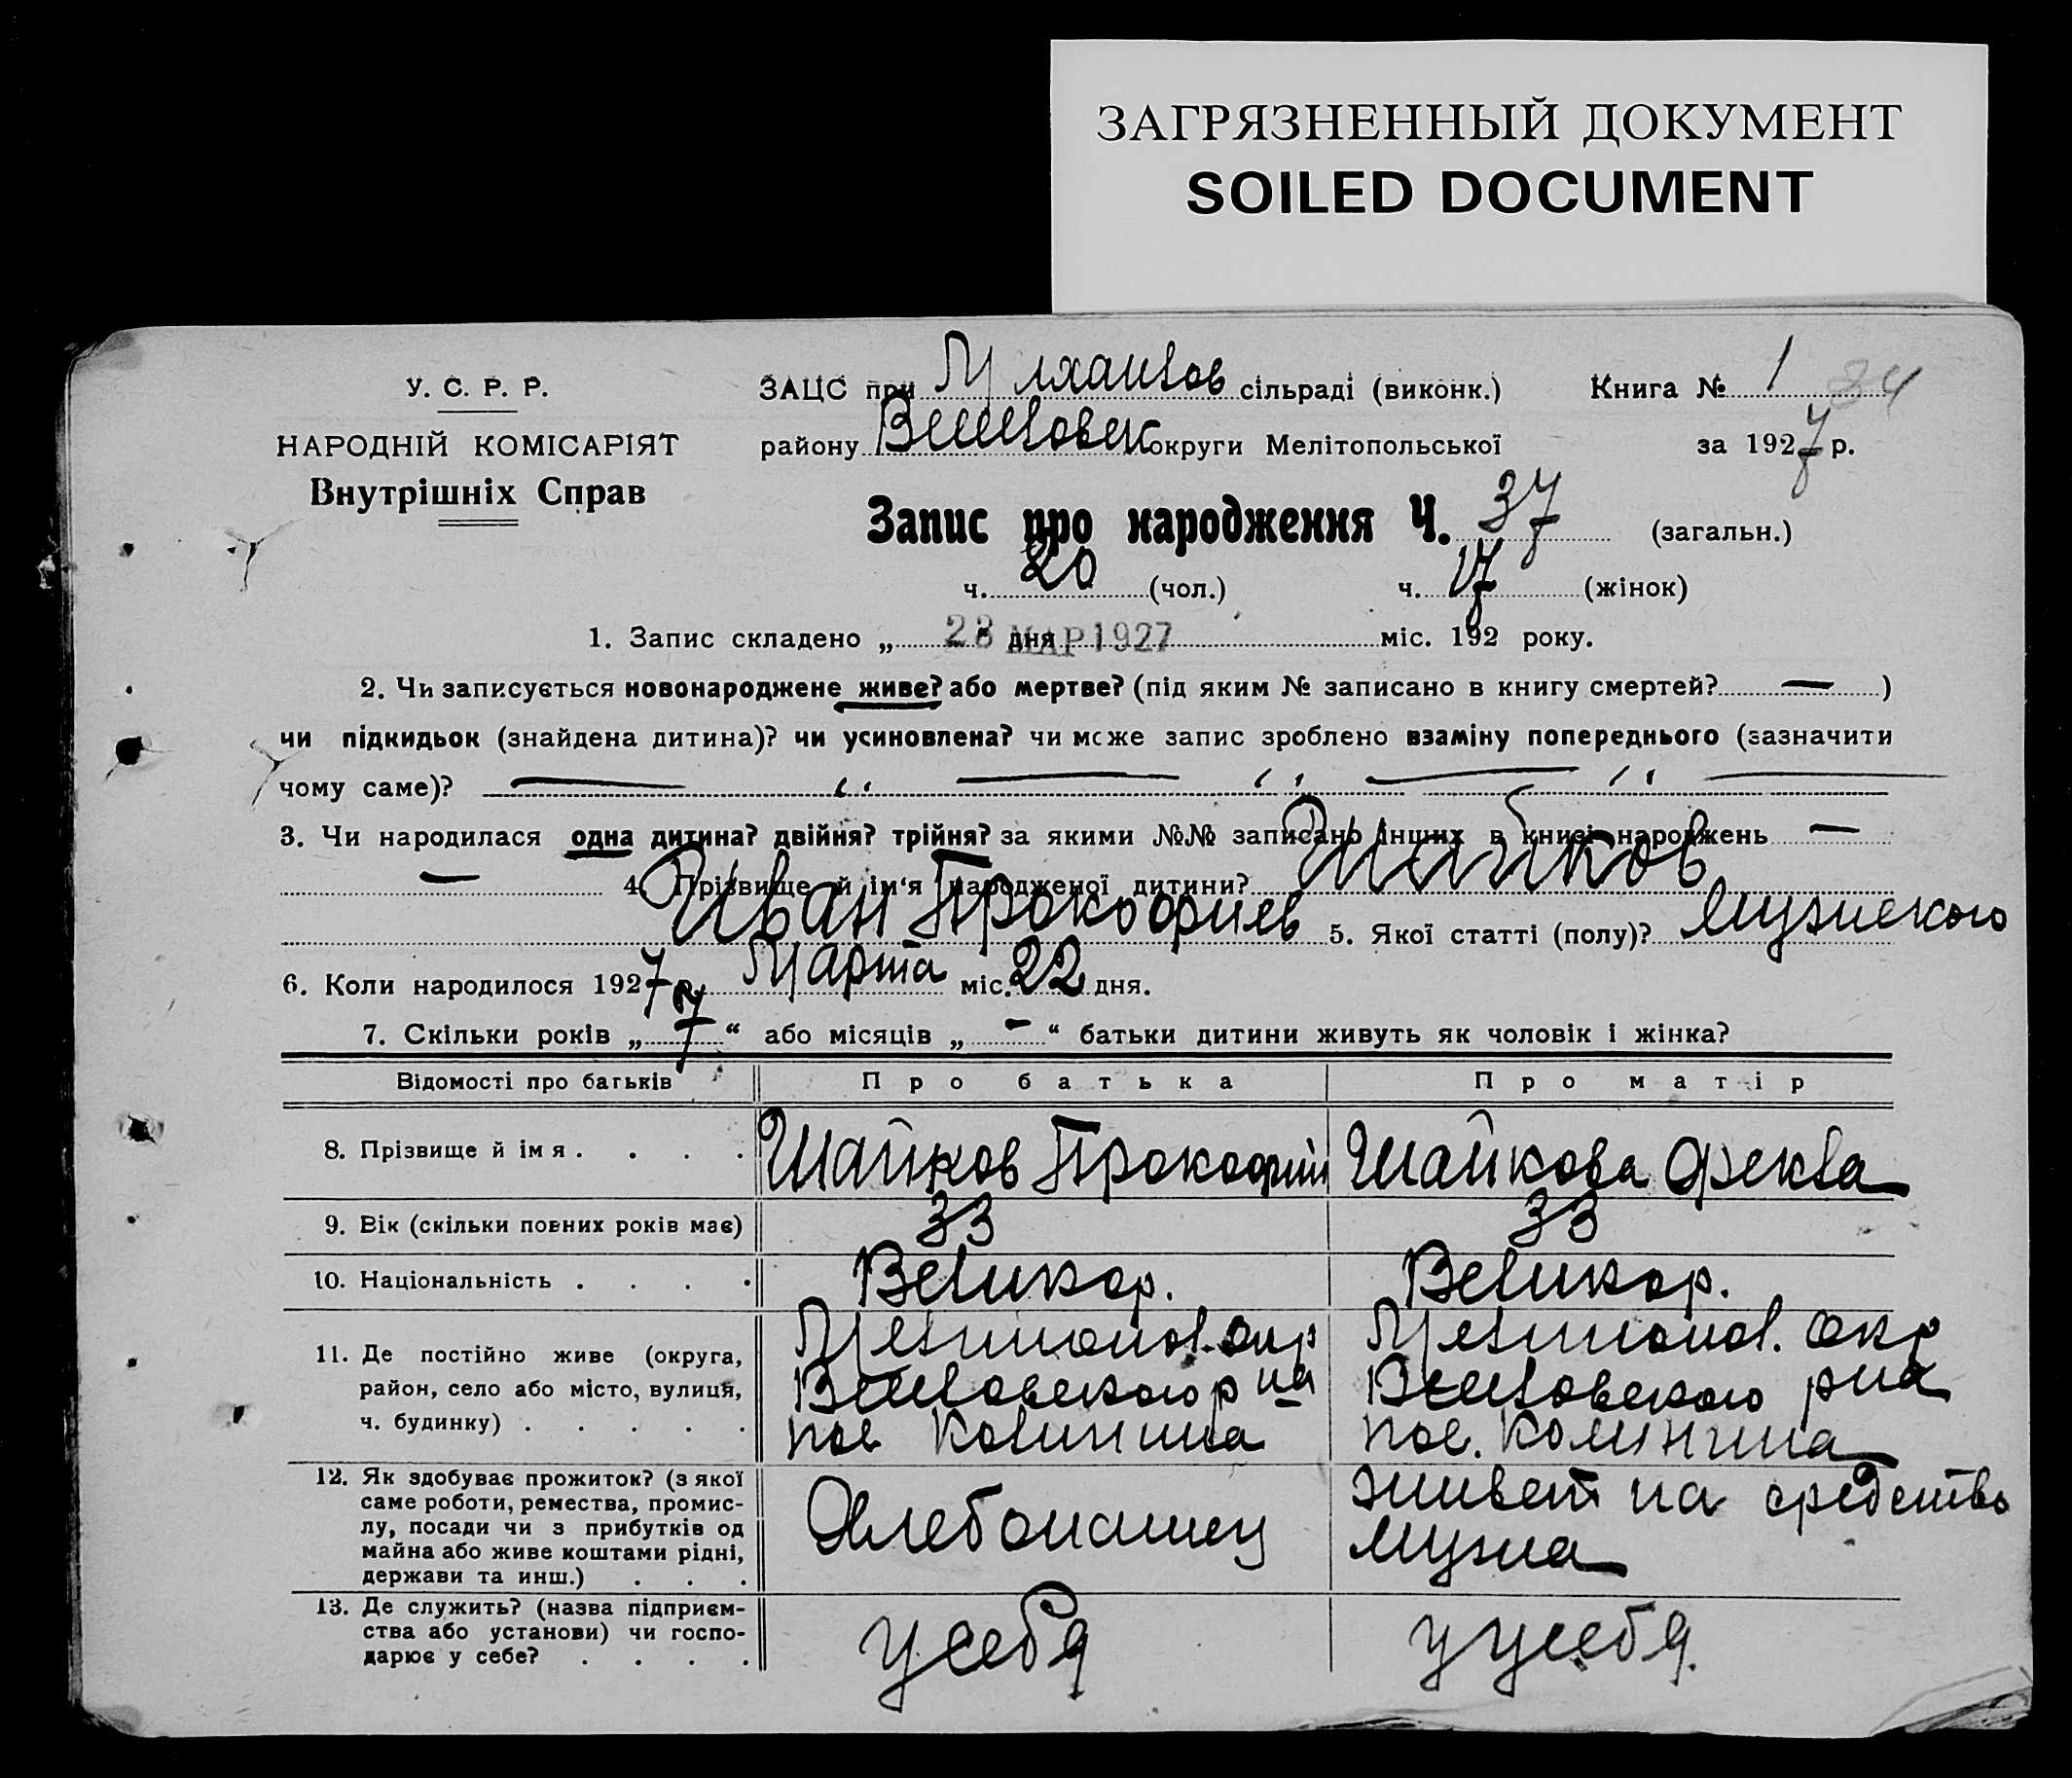 ЗАГРЯЗНЕННЫЙ ДОКУМЕНТ
SOILED DOCUMENT
У. С. Р. Р.
НАРОДНІЙ КОМІСАРІЯТ
Внутрішніх Справ
ЗАЦС при Михайлов сільраді (виконк.) Книга № 1 34
району Веселовск округи Мелітопольської за 1927 р.
Запис про народження Ч. 37 (загальн.)
ч. 20 (чол.) ч. 17 (жінок)
1. Запис складено „ 28 “ дня МАР 1927 міс. 192 року.
2. Чи записується новонароджене живе? або мертве? (під яким № записано в книгу смертей? — )
чи підкидьок (знайдена дитина)? чи усиновлена? чи може запис зроблено взаміну попереднього (зазначити
чому саме)? — „ — „ — „ —
3. Чи народилася одна дитина? двійня? трійня? за якими №№ записано інших в книзі народжень —
— 4. Прізвище й ім‘я народженої дитини? Шайков
Иван Прокофиев 5. Якої статті (полу)? Мужского
6. Коли народилося 1927 р. Марта міс. 22 дня.
7. Скільки років „ 7 “ або місяців „ — “ батьки дитини живуть як чоловік і жінка?
Відомості про батьків Про батька Про матір
8. Прізвище й імя . . . . Шайков Прокофий Шайкова Фекла
9. Вік (скільки повних років має) 33 33
10. Національність . . . . Великор. Великор.
11. Де постійно живе (округа, Мелитопол. окр Мелитопол. окр
район, село або місто, вулиця, Веселовского р на Веселовского рна
ч. будинку) . . . . . пос Калинина пос. Калинина
12. Як здобуває прожиток? (з якої
саме роботи, ремества, промис-
лу, посади чи з прибутків од
майна або живе коштами рідні,
держави та инш.) . . . Хлебопашец живет на средства
мужа
13. Де служить? (назва підприєм-
ства або установи) чи госпо-
дарює у себе? . . . . у себя у у себя.